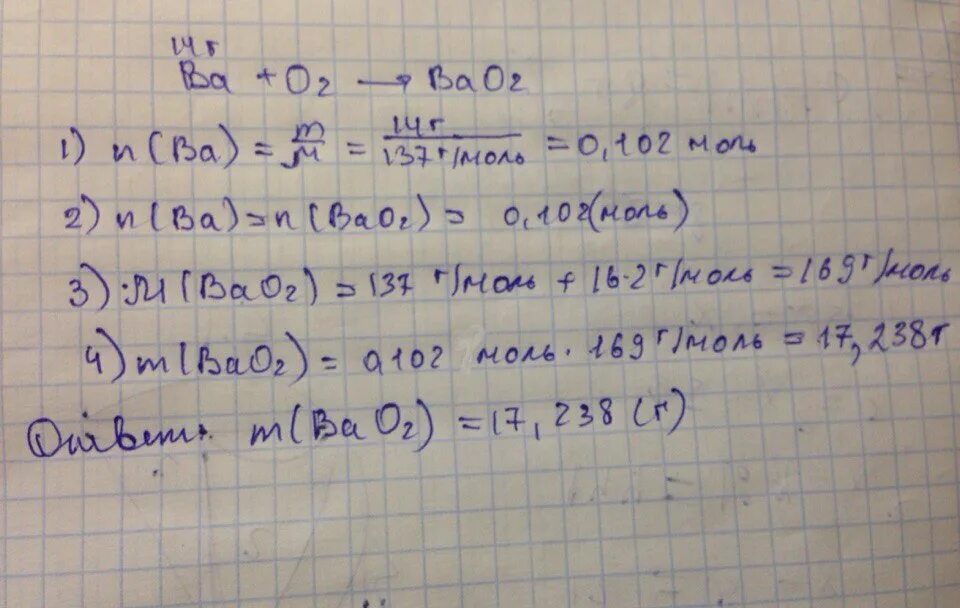 14 г
Ba + O₂ → BaO₂
1) n (Ba) = m/M = 14 г/137 г/моль = 0,102 моль
2) n (Ba) = n (BaO₂) = 0,102 (моль)
3) M (BaO₂) = 137 г/моль + 16·2 г/моль = 169 г/моль
4) m (BaO₂) = 0,102 моль · 169 г/моль = 17,238 г
Ответ: m (BaO₂) = 17,238 (г)